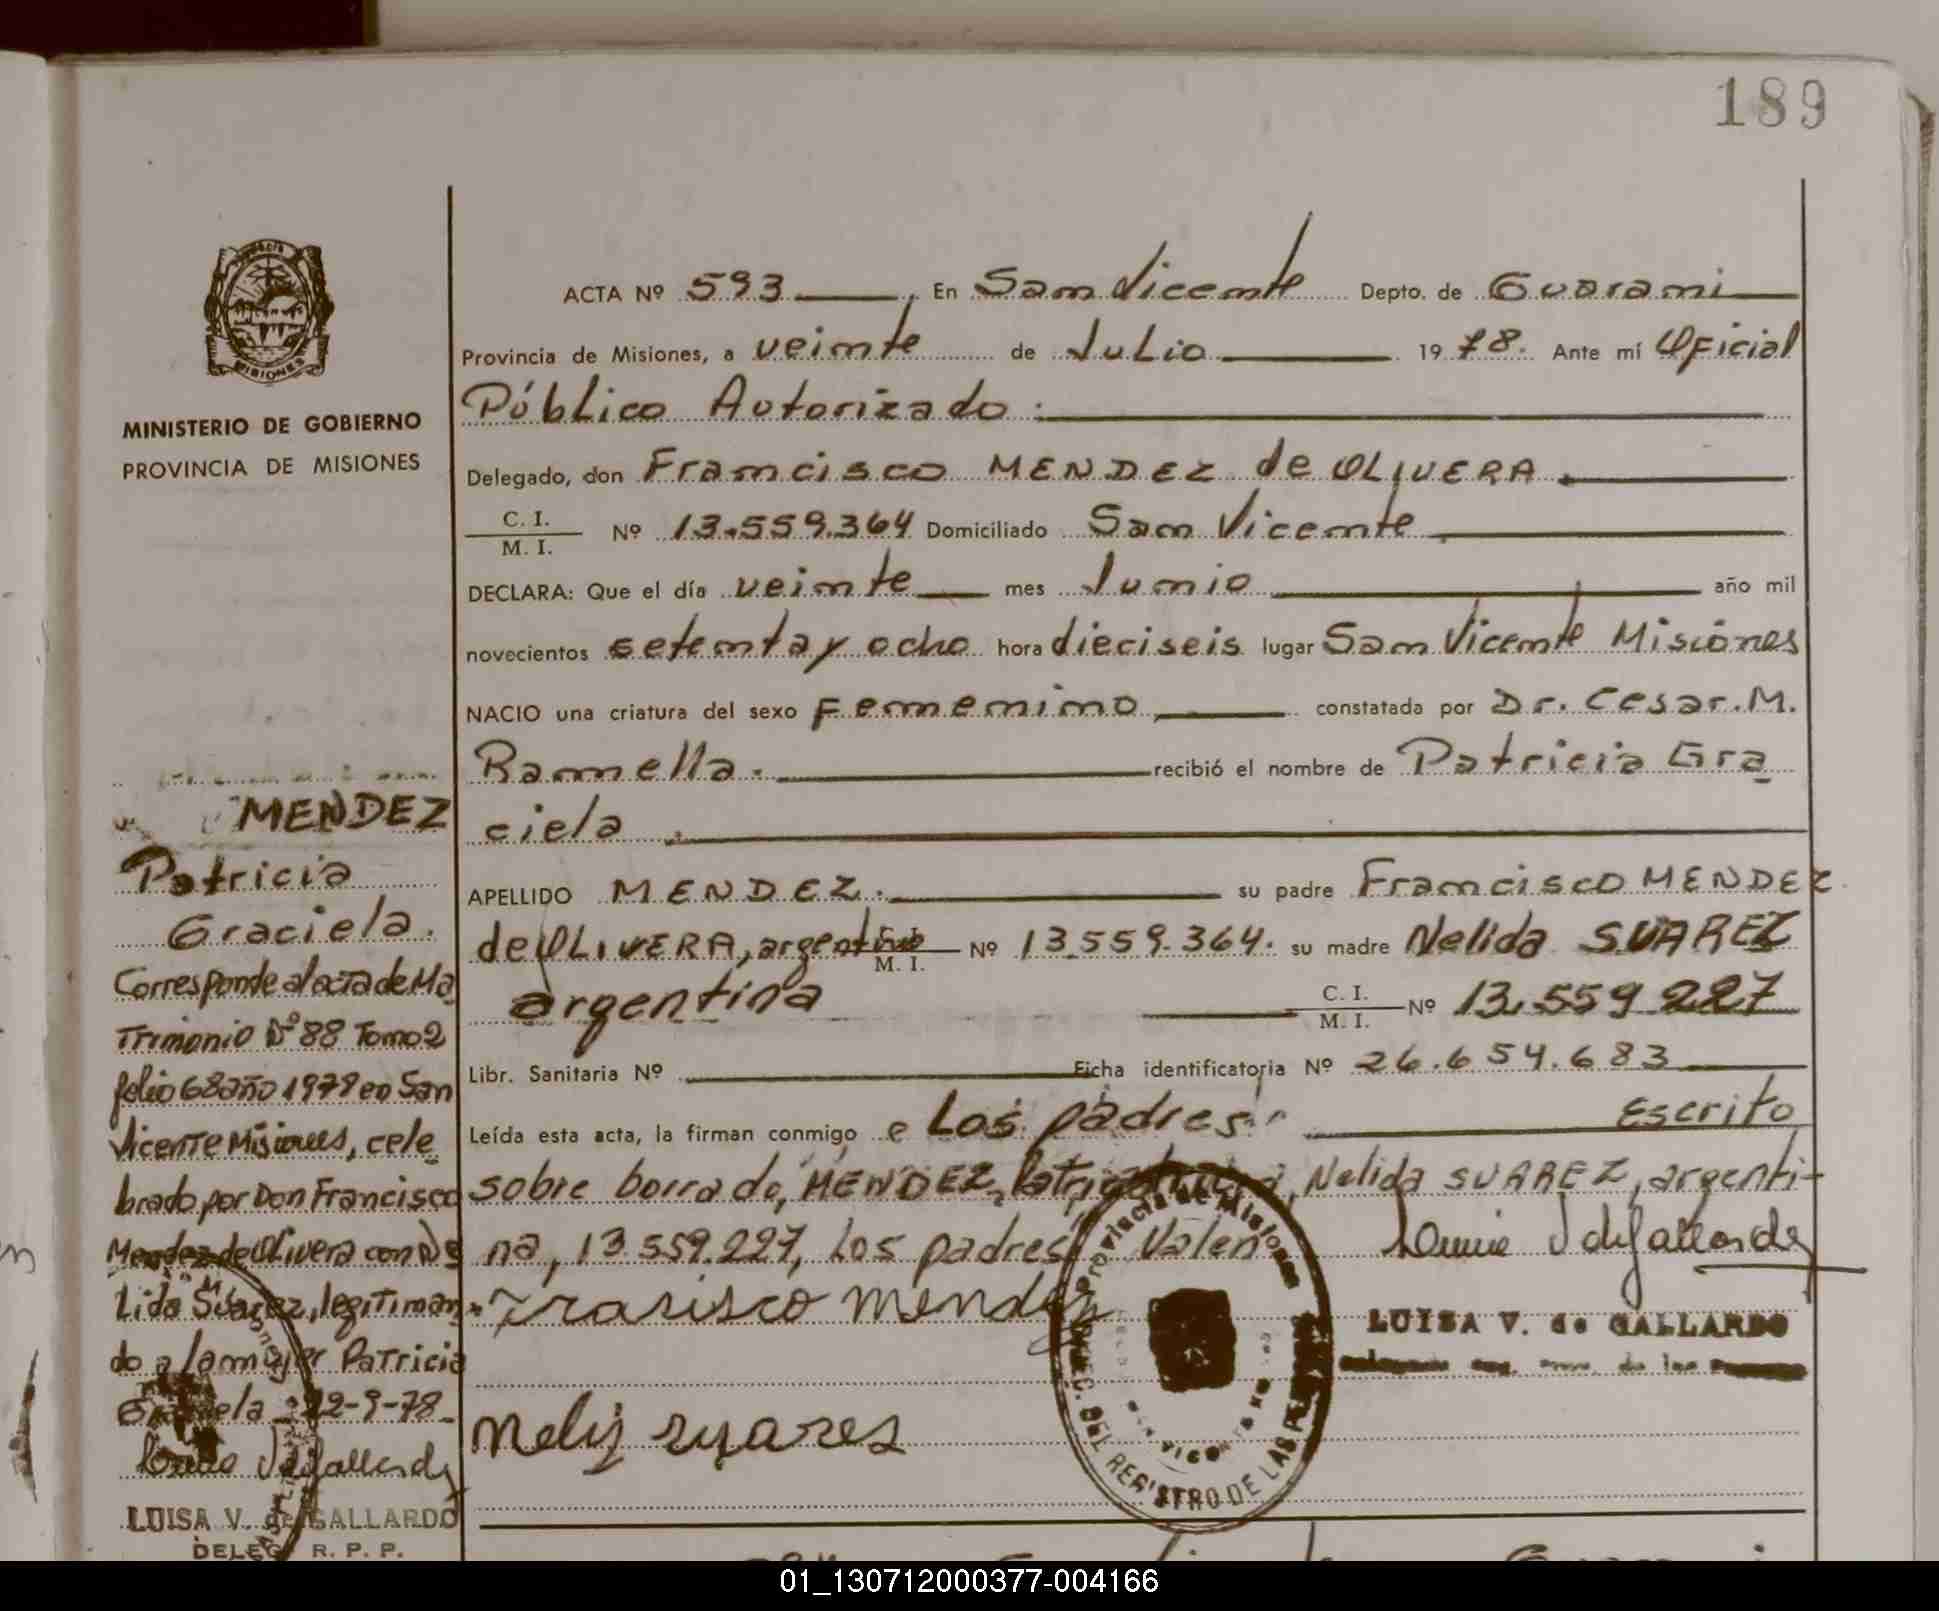 189
MISIONES
MINISTERIO DE GOBIERNO
PROVINCIA DE MISIONES
ACTA Nº 593, En San Vicente Depto. de Guarani
Provincia de Misiones, a veinte de Julio 1978. Ante mí Oficial
Público Autorizado:
Delegado, don Francisco MENDEZ de OLIVERA.
C. I.
M. I. Nº 13.559.364 Domiciliado San Vicente
DECLARA: Que el día veinte mes Junio año mil
novecientos setenta y ocho hora dieciseis lugar San Vicente Misiones
NACIO una criatura del sexo Femenino constatada por Dr. Cesar. M.
Ramella. recibió el nombre de Patricia Gra
ciela.
APELLIDO MENDEZ. su padre Francisco MENDEZ
de OLIVERA, argentino M. I. Nº 13.559.364. su madre Nelida SUAREZ
argentina C. I.
M. I. Nº 13.559.227
Libr. Sanitaria Nº Ficha identificatoria Nº 26.654.683
Leída esta acta, la firman conmigo e Los padres" Escrito
sobre borrado, MENDEZ, Nelida SUAREZ, argenti-
na, 13.559.227, Los padres" Valen
Frasisco Mendez
Nelij suares
LUISA V. de GALLARDO
Provincia de Misiones
DEL REGISTRO DE LAS PERSONAS
MENDEZ
Patricia
Graciela.
Corresponde al acta de Ma
trimonio Nº 88 Tomo 2
folio 68 año 1978 en San
Vicente Misiones, cele
brado por Don Francisco
Mendez de Olivera con Ne
lida Suarez, legitiman
do a la menor Patricia
Graciela - 22-9-78
LUISA V. de GALLARDO
DELEG. R. P. P.
01_130712000377-004166